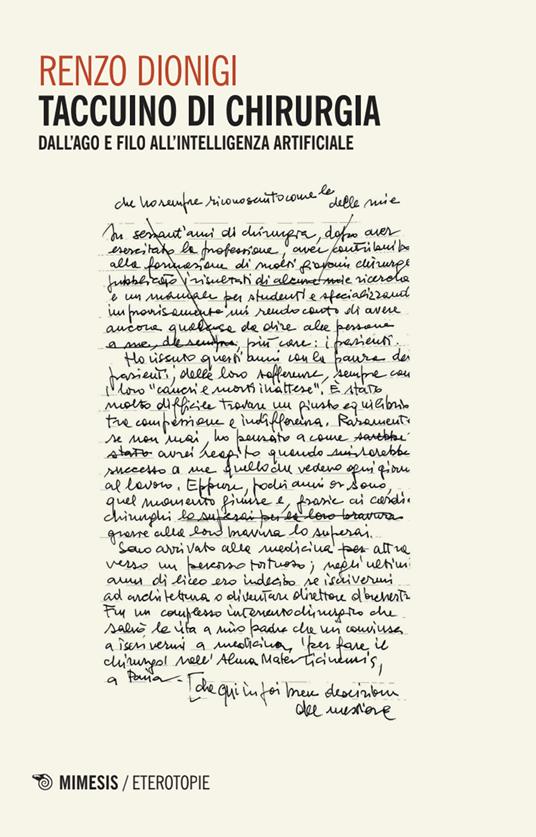 RENZO DIONIGI
TACCUINO DI CHIRURGIA
DALL'AGO E FILO ALL'INTELLIGENZA ARTIFICIALE
che ho sempre riconosciuto come le delle mie
In sessant'anni di chirurgia, dopo aver
esercitato la professione, aver contribuito
alla formazione di molti giovani chirurghi
pubblicato i risultati di alcune mie ricerche
e un manuale per studenti e specializzandi
improvvisamente mi rendo conto di avere
ancora qualcosa da dire alle persone
a me, da sempre, più care: i pazienti.
Ho vissuto questi anni con la paura dei
pazienti, delle loro sofferenze, sempre con
i loro "cancri e morti inattese". È stato
molto difficile trovare un giusto equilibrio
tra compassione e indifferenza. Raramente
se non mai, ho pensato a come sarebbe
stato avrei reagito quando mi sarebbe
successo a me quello che vedevo ogni giorno
al lavoro. Eppure, pochi anni or sono,
quel momento giunse e, grazie ai cardio
chirurghi lo superai per la loro bravura
grazie alla loro bravura lo superai.
Sono arrivato alla medicina per attra
verso un percorso tortuoso; negli ultimi
anni di liceo ero indeciso se iscrivermi
ad architettura o diventare direttore d'orchestra
Fu un complesso intervento chirurgico che
salvò la vita a mio padre che mi convinse
a iscrivermi a medicina, "per fare il
chirurgo" nell'Alma Mater Ticinensis,
a Pavia.
[che qui in poi breve descrizione
del mestiere
MIMESIS / ETEROTOPIE